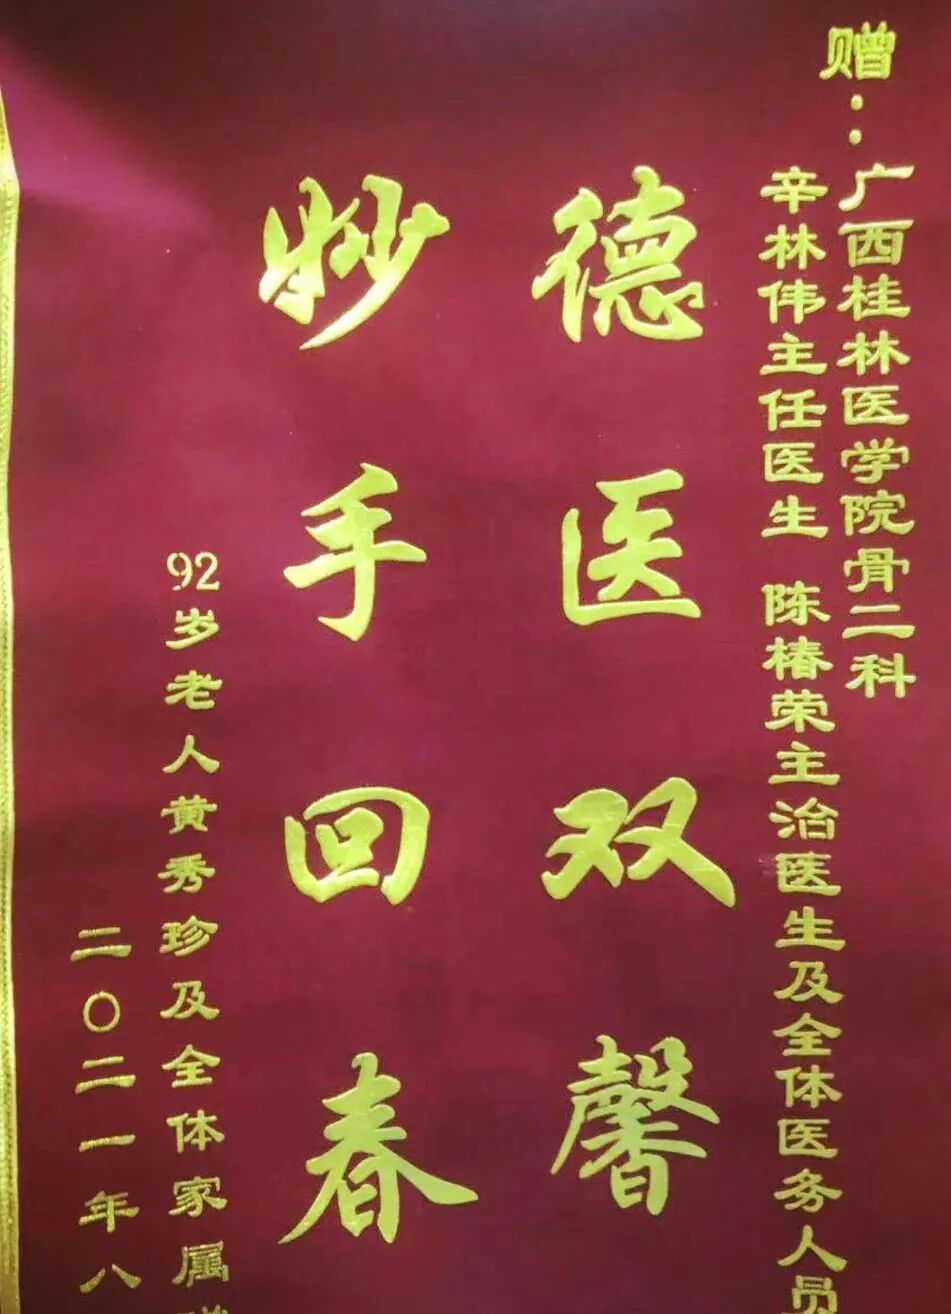 赠：广西桂林医学院骨二科
辛林伟主任医生 陈椿荣主治医生及全体医务人员
德医双馨
妙手回春
92岁老人黄秀珍及全体家属
二〇二一年八